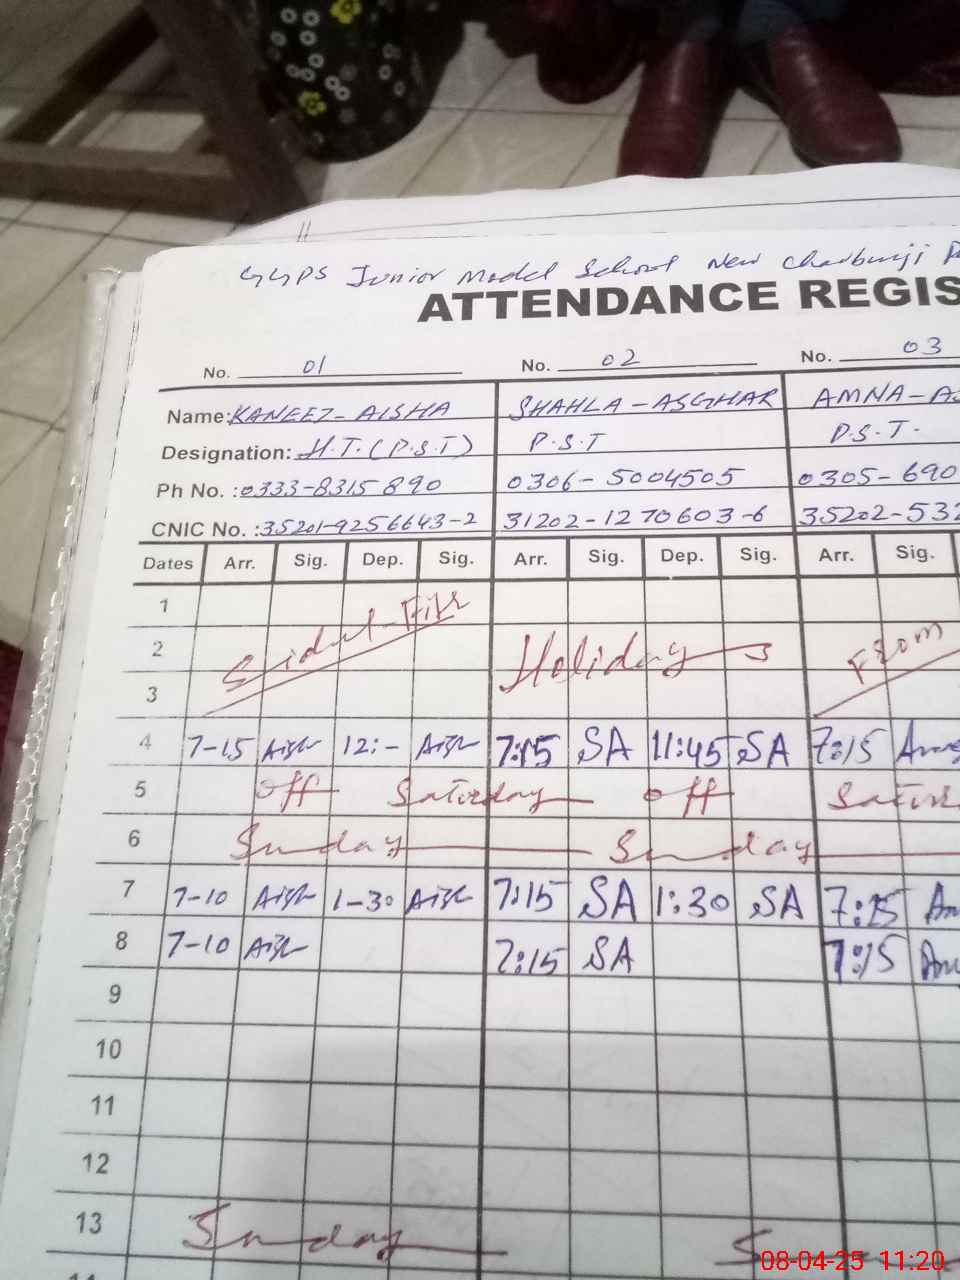 GGPS Junior Model School New Chauburji
ATTENDANCE REGIS
No. 01 No. 02 No. 03
Name: KANEEZ-AISHA SHAHLA-ASGHAR AMNA-AS
Designation: H.T.(P.S.T) P.S.T P.S.T.
Ph No. : 0333-8315890 0306-5004505 0305-690
CNIC No. : 35201-9256643-2 31202-1270603-6 35202-532
Dates Arr. Sig. Dep. Sig. Arr. Sig. Dep. Sig. Arr. Sig.
1
2 Eidul-Fitr Holidays From
3
4 7-15 Aish 12:- Aish 7:15 SA 11:45 SA 7:15
5 off Saturday off Satur
6 Sunday Sunday
7 7-10 Aish 1-30 Aish 7:15 SA 1:30 SA 7:15
8 7-10 Aish 7:15 SA 7:15
9
10
11
12
13 Sunday S
08-04-25 11:20